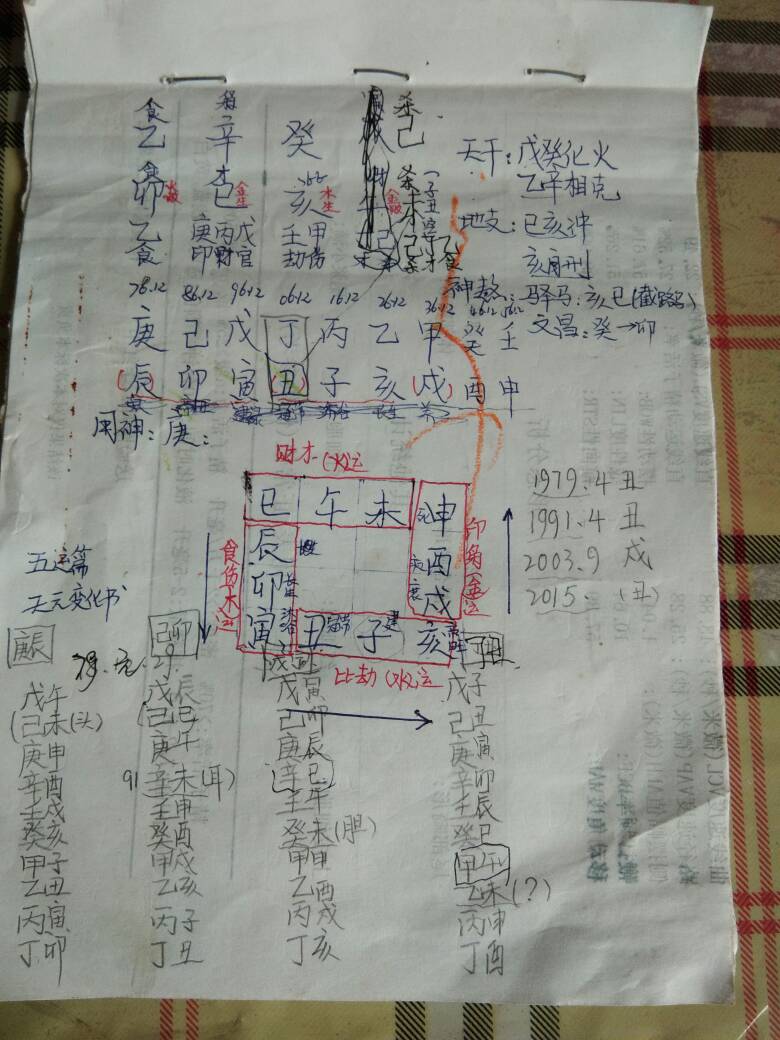 食 杀
乙 辛 癸 己 天干：戊癸化火
食 杀 乙辛相克
卯 巳 亥 未 地支：巳亥冲
乙 庚丙戊 壬甲 己 乙 亥自刑
食 印财官 劫伤 杀 食
神煞：驿马：亥巳(截路马)
文昌：癸→卯
78.12 86.12 96.12 06.12 16.12 26.12 36.12 46.12
庚 己 戊 丁 丙 乙 甲 癸 壬
(辰) 卯 寅 (丑) 子 亥 (戌) 酉 申
用神：庚：
财才(火)运
巳 午 未 申
辰 酉
卯 戌
寅 丑 子 亥
食伤(木)运
印枭(金)运
比劫(水)运
1979.4 丑
1991.4 丑
2003.9 戌
2015. (丑)
五运篇
天元变化书
庚辰 己卯 戊寅 丁丑
戊午 戊辰 戊寅 戊子
(己未(头) (己巳 己卯 己丑
庚申 庚午 庚辰 庚寅
辛酉 91 辛未(耳) 辛巳 辛卯
壬戌 壬申 壬午 壬辰
癸亥 癸酉 癸未(胆) 癸巳
甲子 甲戌 甲申 甲午
乙丑 乙亥 乙酉 乙未(?)
丙寅 丙子 丙戌 丙申
丁卯 丁丑 丁亥 丁酉